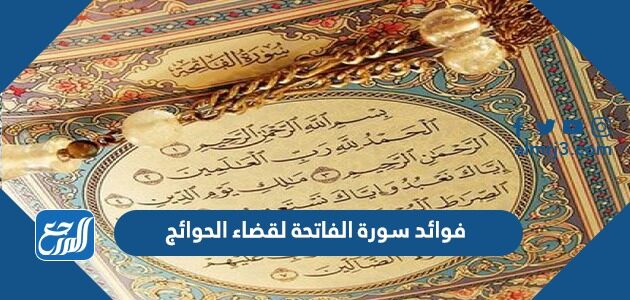 سُورَةُ الْفَاتِحَةِ
بِسْمِ اللَّهِ الرَّحْمَٰنِ الرَّحِيمِ ١
الْحَمْدُ لِلَّهِ رَبِّ الْعَالَمِينَ ٢
الرَّحْمَٰنِ الرَّحِيمِ ٣ مَالِكِ يَوْمِ الدِّينِ ٤
إِيَّاكَ نَعْبُدُ وَإِيَّاكَ
الصِّرَاطَ
فوائد سورة الفاتحة لقضاء الحوائج
المرجع
عَلَيْهِمْ
الضَّالِّينَ ٧